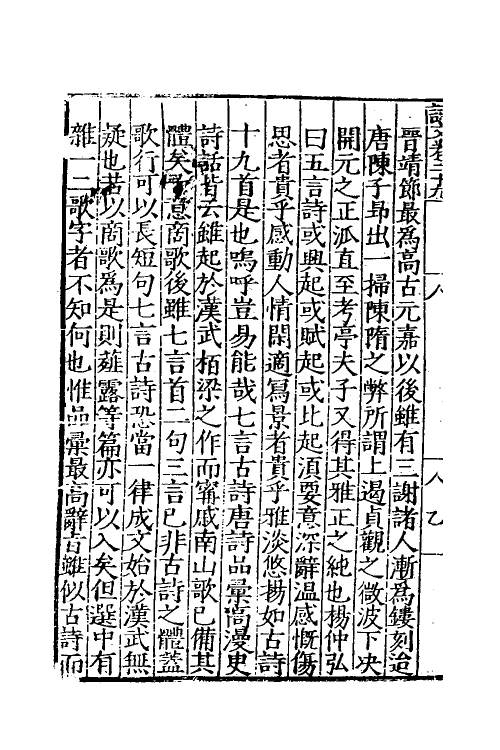 晉靖節最為高古元嘉以後雖有三謝諸人漸為鏤刻迨
唐陳子昻出一掃陳隋之弊所謂上遏貞觀之微波下決
開元之正派直至考亭夫子又得其雅正之純也楊仲弘
曰五言詩或興起或賦起或比起湏要意深辭温感慨傷
思者貴乎感動人情閑適寫景者貴乎雅淡悠揚如古詩
十九首是也嗚呼豈易能哉七言古詩唐詩品彚滄漫史
詩話皆云雖起於漢武栢梁之作而甯戚南山歌已備其
體矣意商歌後雖七言首二句三言已非古詩之體葢
歌行可以長短句七言古詩恐當一律成文始於漢武無
疑也若以商歌為是則薤露等篇亦可以入矣但選中有
雜一二歌字者不知何也惟品彚最高辭旨雖似古詩而